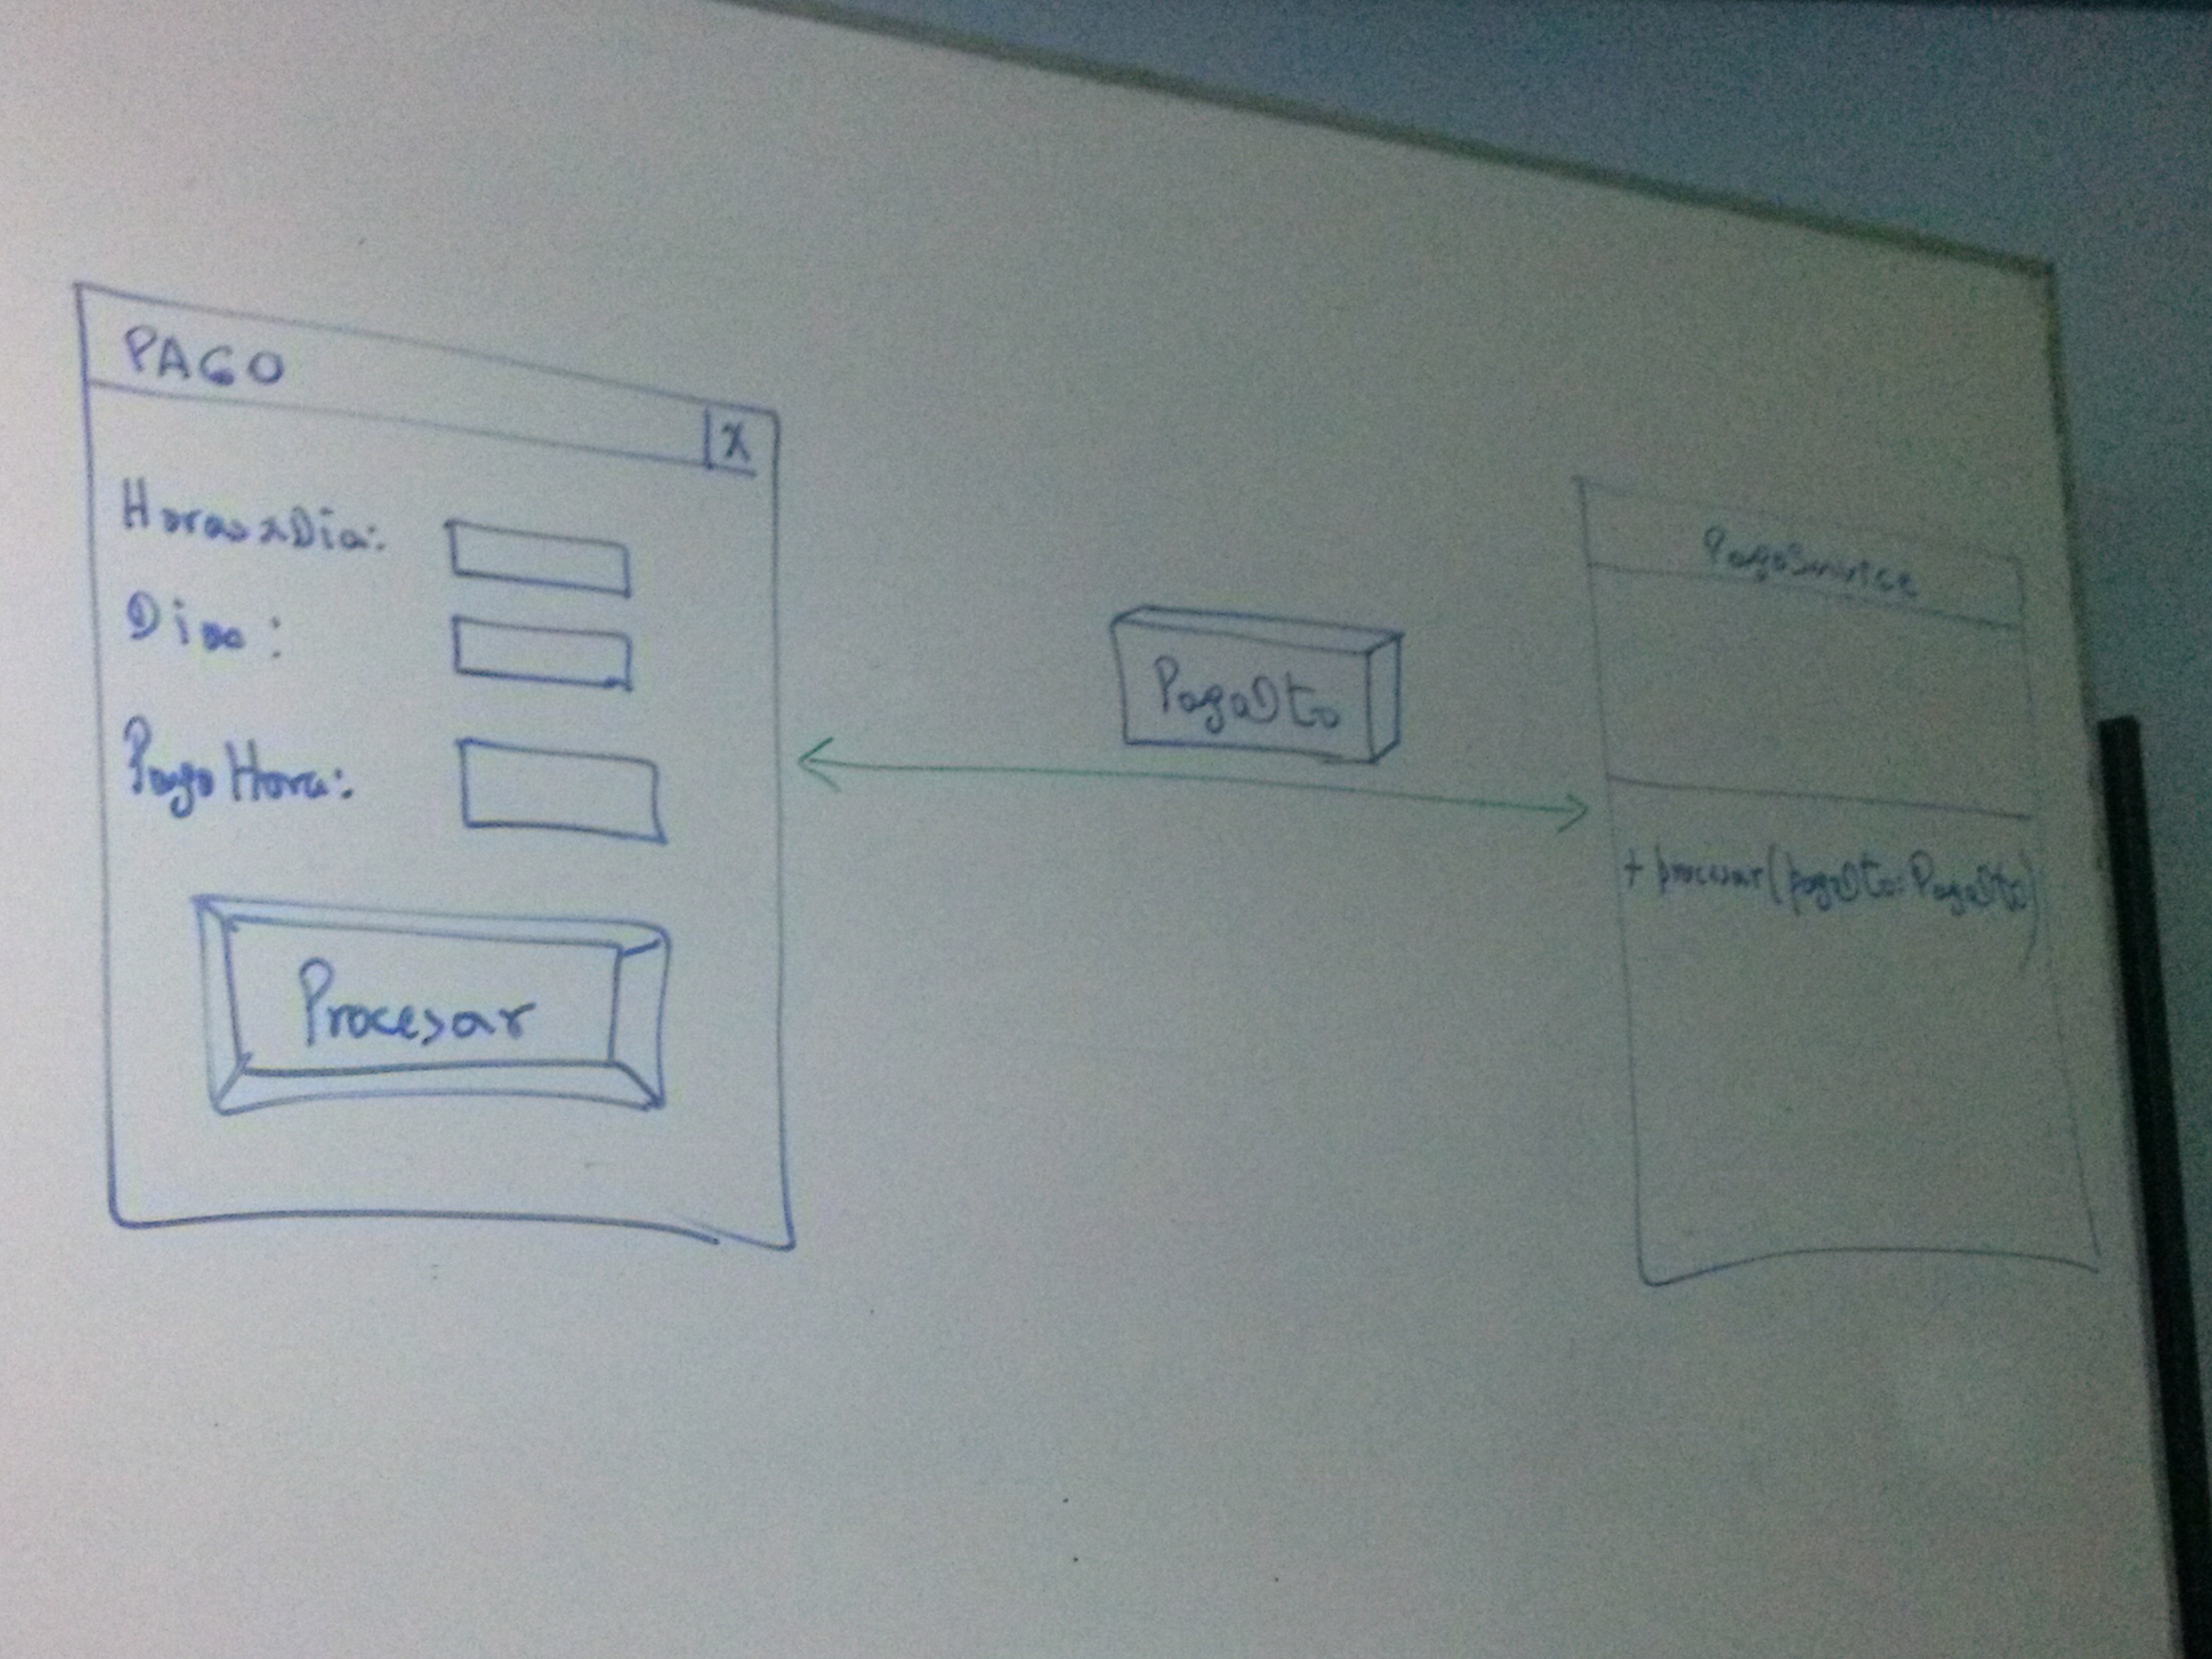 PAGO
X
HorasxDia:
Dias:
Pago Hora:
Procesar
PagoDto
PagoService
+ procesar(pagoDto: PagoDto)